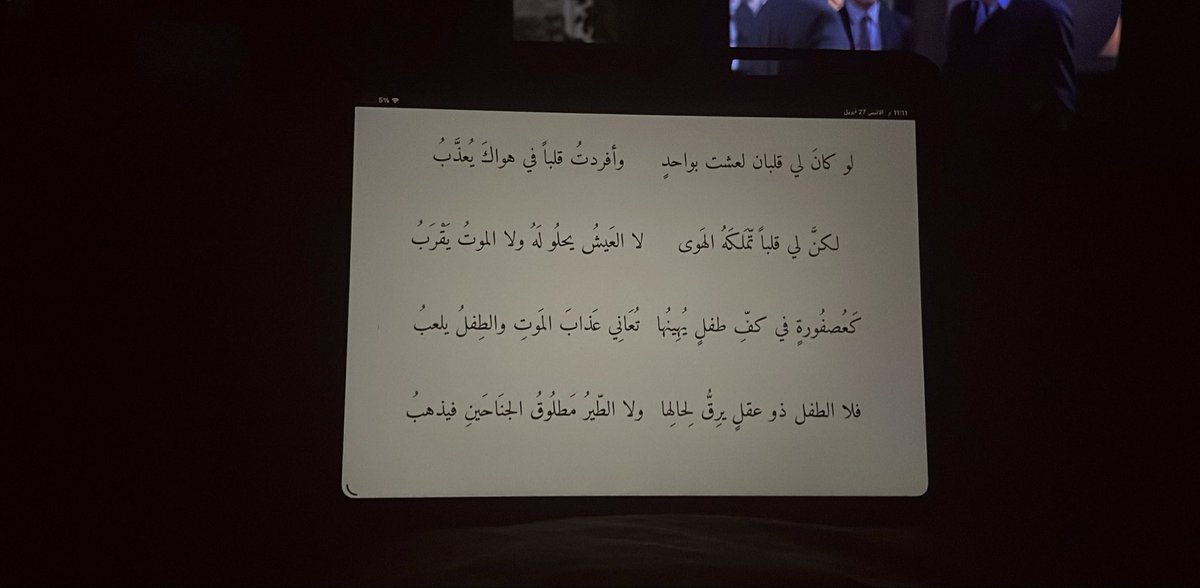 11:11 م الاثنين 27 فبراير 5%
لو كانَ لي قلبان لعشت بواحدٍ وأفردتُ قلباً في هواكَ يُعذَّبُ
لكنَّ لي قلباً تّمَلكَهُ الهَوى لا العَيشُ يحلُو لَهُ ولا الموتُ يَقْرَبُ
كَعُصفُورةٍ في كفِّ طفلٍ يُهِينُها تُعَانِي عَذابَ المَوتِ والطِفلُ يلعبُ
فلا الطفل ذو عقلٍ يرِقُّ لِحالِها ولا الطّيرُ مَطلُوقُ الجنَاحَينِ فيذهبُ